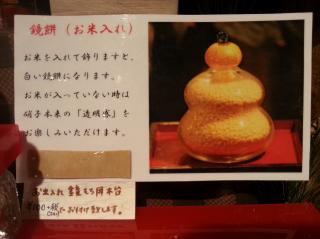 鏡餅（お米入れ）
お米を入れて飾りますと、
白い鏡餅になります。
お米が入っていない時は
硝子本来の「透明感」を
お楽しみいただけます。
お米入れ 鏡もち用木台
お付け致します。